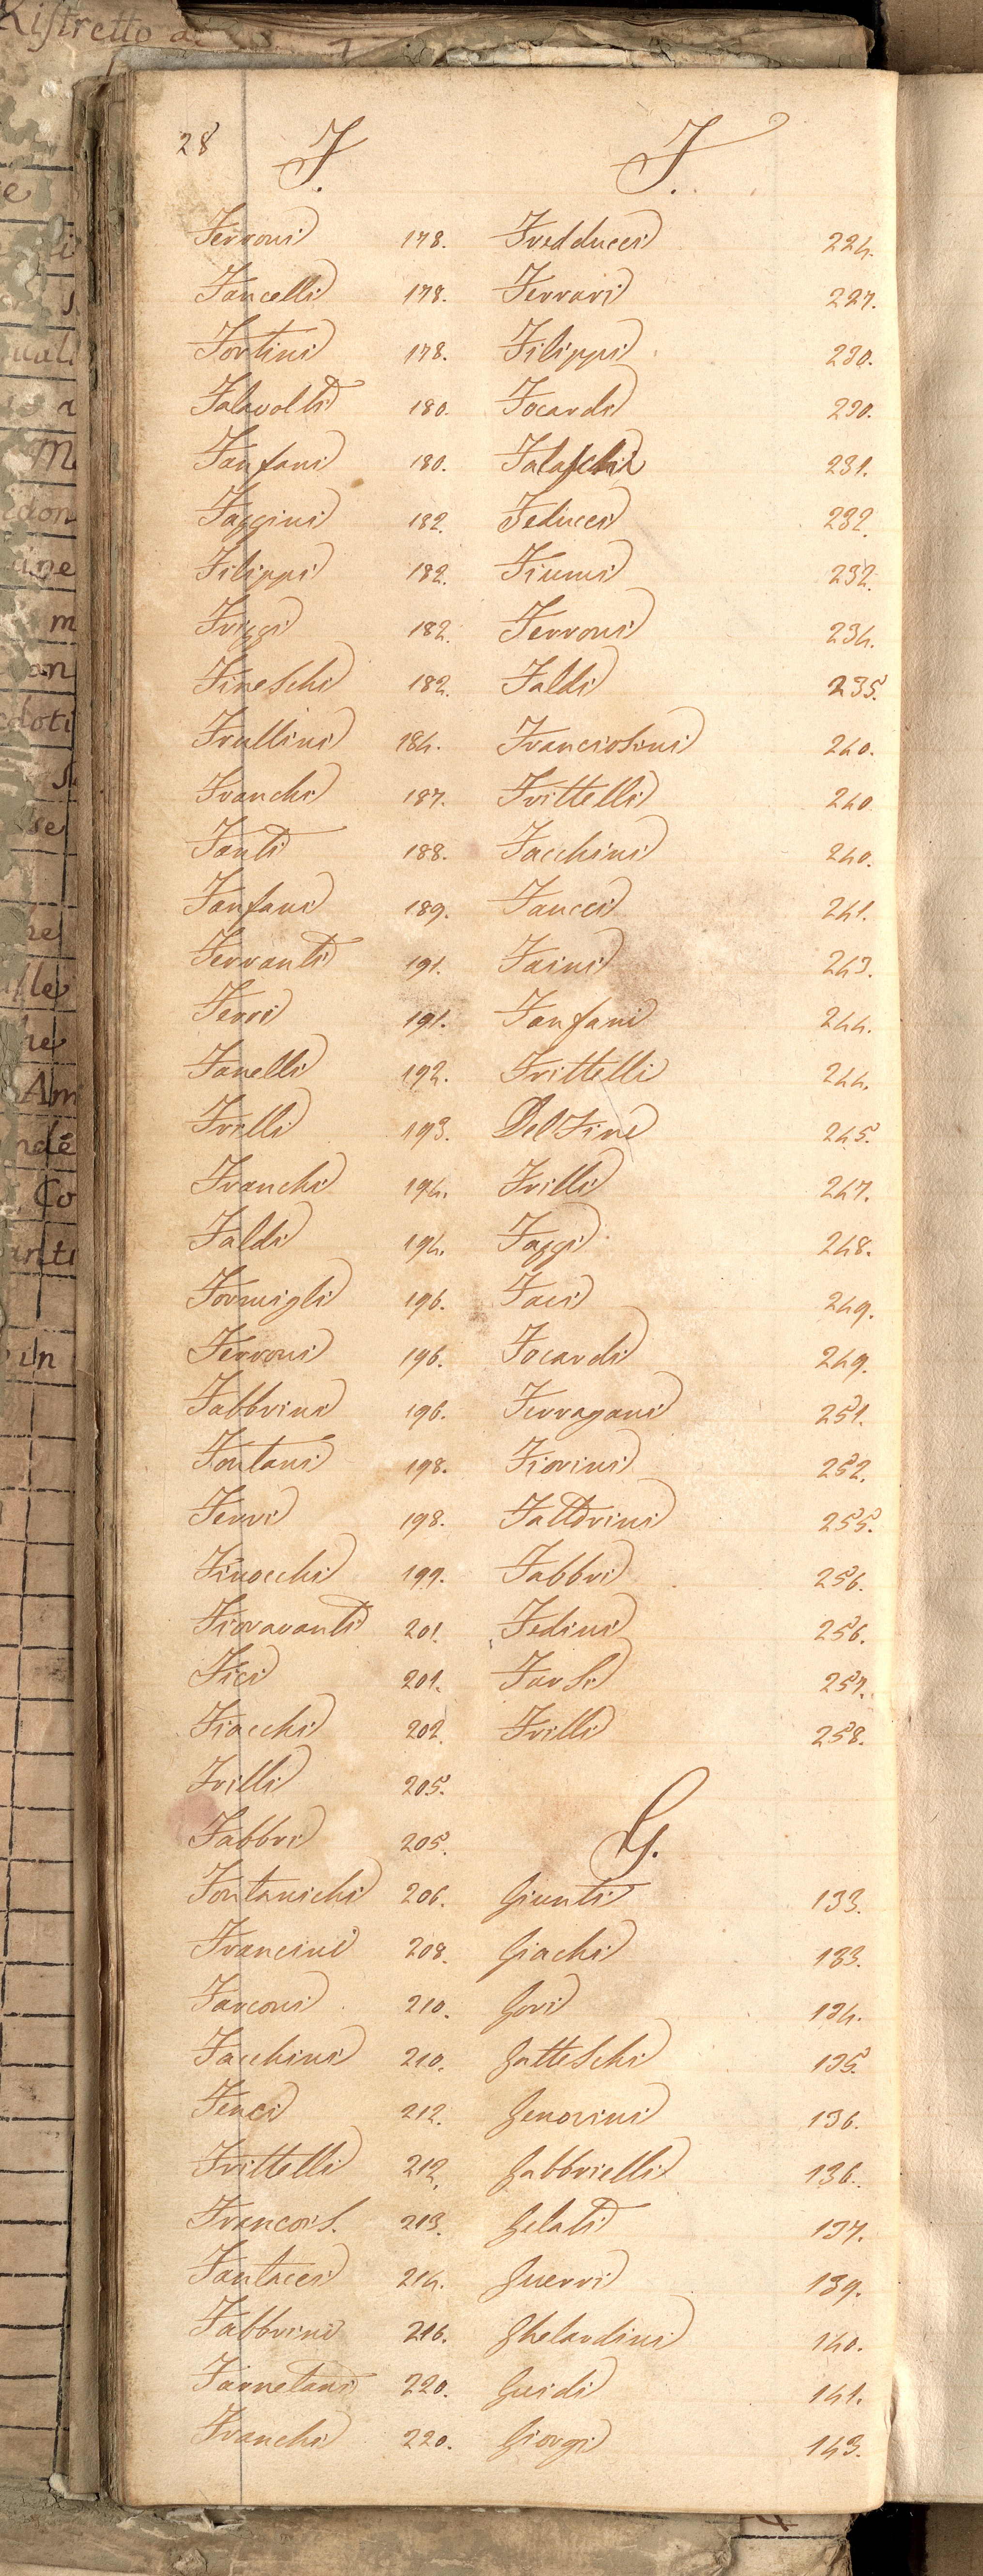 28
F.
Ferroni 178.
Fancelli 178.
Fortini 178.
Falavolti 180.
Fanfani 180.
Faggini 182.
Filippi 182.
Friggi 182.
Fineschi 182.
Frullini 184.
Franchi 187.
Fanti 188.
Fanfani 189.
Ferranti 191.
Ferri 191.
Fanelli 192.
Frilli 193.
Franchi 194.
Faldi 194.
Formigli 196.
Ferroni 196.
Fabbrini 196.
Fontani 198.
Ferri 198.
Finocchi 199.
Fioravanti 201.
Fici 201.
Fiacchi 202.
Frilli 205.
Fabbri 205.
Fontanichi 206.
Francini 208.
Farconi 210.
Facchini 210.
Fenci 212.
Frittelli 212.
Francois. 213.
Fantacci 214.
Fabbrini 216.
Farnetani 220.
Franchi 220.
F.
Fredducci 224.
Ferrari 227.
Filippi 230.
Focardi 230.
Falaschi 231.
Feducci 232.
Fiumi 232.
Ferroni 234.
Faldi 235.
Franciosini 240.
Frittelli 240
Facchini 240.
Faucci 241.
Faini 243.
Fanfani 244.
Frittelli 244.
Del Fine 245.
Frilli 247.
Faggi 248.
Faci 249.
Focardi 249.
Ferragani 251.
Fiorini 252.
Fattorini 255.
Fabbri 256.
Fedini 256.
Farsi 257.
Frilli 258.
G.
Giunti 133.
Giachi 133.
Gori 134.
Gatteschi 135.
Genorini 136.
Gabbrielli 136.
Gelati 137.
Guerri 139.
Ghelardini 140.
Guidi 141.
Giorgi 143.
Ristretto